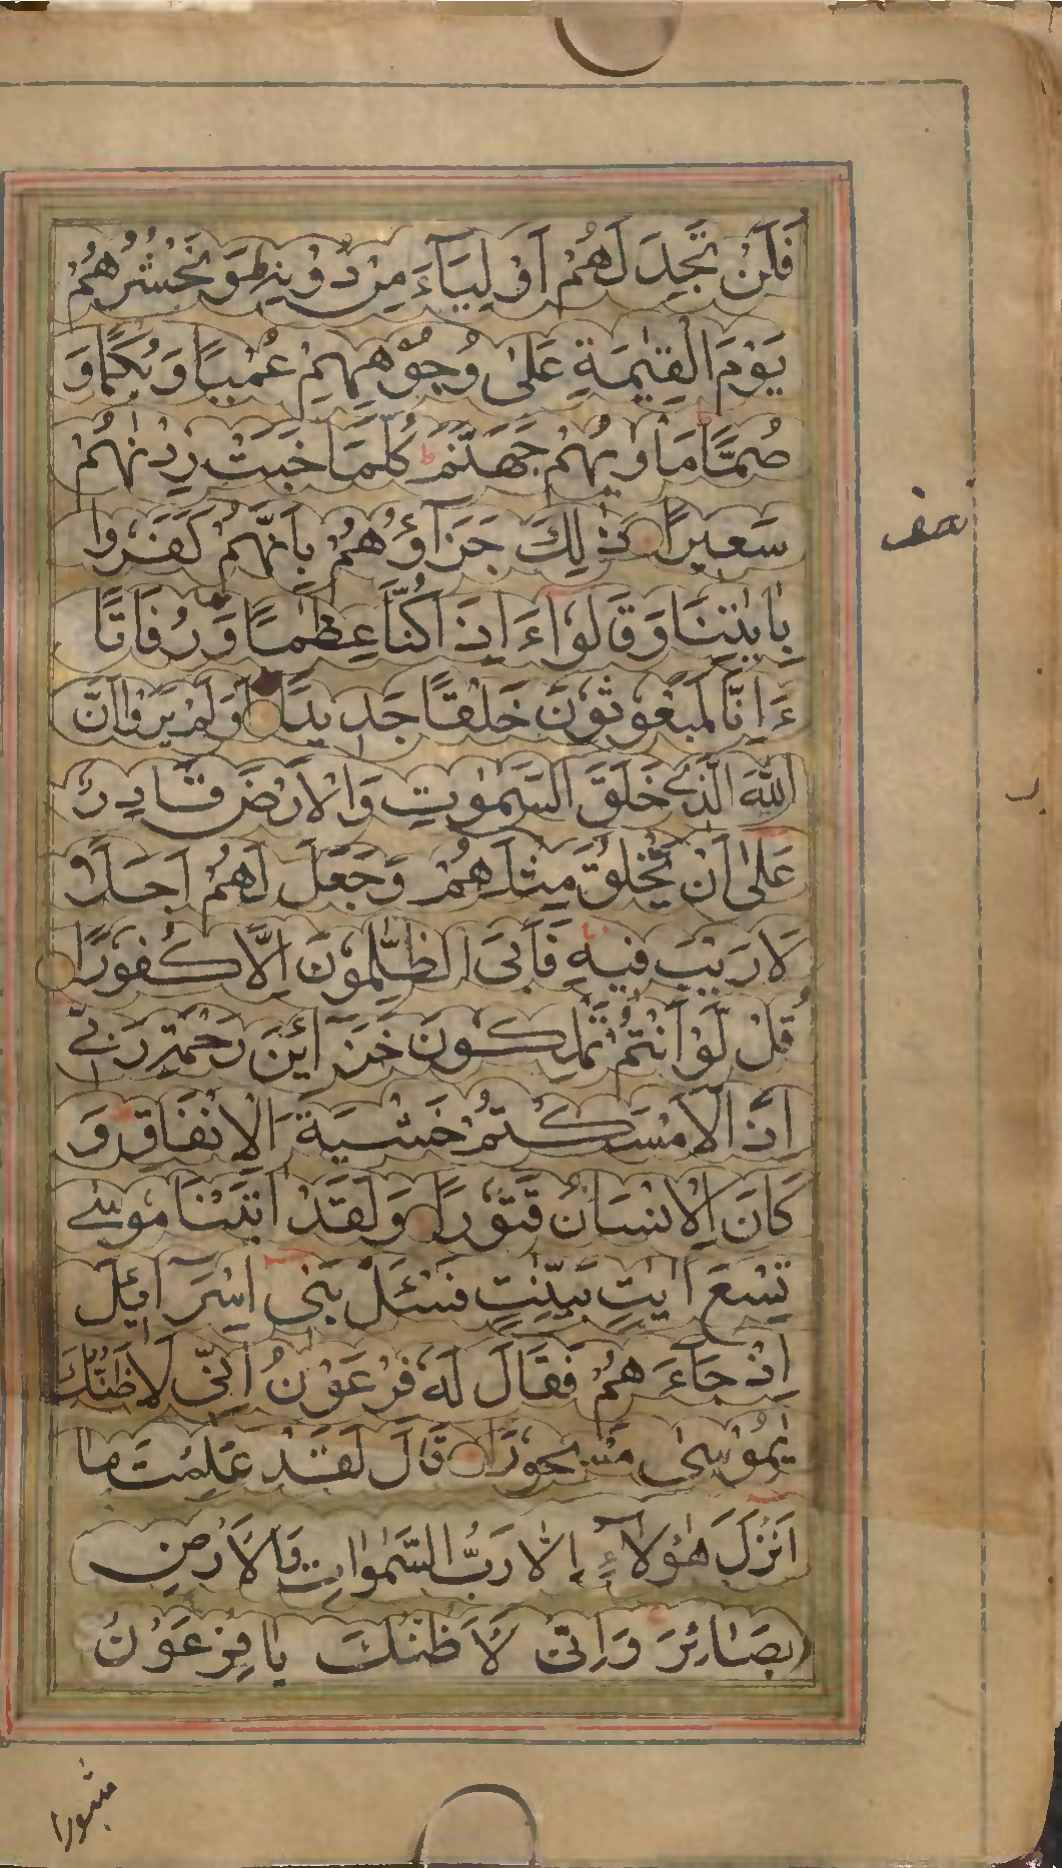 فَلَنْ تَجِدَ لَهُمْ اَوْلِيَآءَ مِنْ دُوْنِهٖ ط وَ نَحْشُرُهُمْ
يَوْمَ الْقِيٰمَةِ عَلٰى وُجُوْهِهِمْ عُمْيًا وَ بُكْمًا وَ
صُمًّا مَاْوٰىهُمْ جَهَنَّمُ ط كُلَّمَا خَبَتْ زِدْنٰهُمْ
سَعِيْرًا ذٰلِكَ جَزَآؤُهُمْ بِاَنَّهُمْ كَفَرُوا
بِاٰيٰتِنَا وَ قَالُوْا ءَاِذَا كُنَّا عِظٰمًا وَّ رُفَاتًا
ءَاِنَّا لَمَبْعُوْثُوْنَ خَلْقًا جَدِيْدًا اَوَلَمْ يَرَوْا اَنَّ
اللّٰهَ الَّذِيْ خَلَقَ السَّمٰوٰتِ وَ الْاَرْضَ قَادِرٌ
عَلٰى اَنْ يَّخْلُقَ مِثْلَهُمْ وَ جَعَلَ لَهُمْ اَجَلًا
لَا رَيْبَ فِيْهِ ط فَاَبَى الظّٰلِمُوْنَ اِلَّا كُفُوْرًا
قُلْ لَّوْ اَنْتُمْ تَمْلِكُوْنَ خَزَآئِنَ رَحْمَةِ رَبِّيْ
اِذًا لَّاَمْسَكْتُمْ خَشْيَةَ الْاِنْفَاقِ وَ
كَانَ الْاِنْسَانُ قَتُوْرًا وَ لَقَدْ اٰتَيْنَا مُوْسٰى
تِسْعَ اٰيٰتٍ بَيِّنٰتٍ فَسْـَٔلْ بَنِيْ اِسْرَآئِيْلَ
اِذْ جَآءَهُمْ فَقَالَ لَهٗ فِرْعَوْنُ اِنِّيْ لَاَظُنُّكَ
يٰمُوْسٰى مَسْحُوْرًا قَالَ لَقَدْ عَلِمْتَ مَا
اَنْزَلَ هٰؤُلَآءِ اِلَّا رَبُّ السَّمٰوَاتِ وَالْاَرْضِ
بَصَائِرَ وَ اِنِّيْ لَاَظُنُّكَ يَا فِرْعَوْنُ
مثبورا